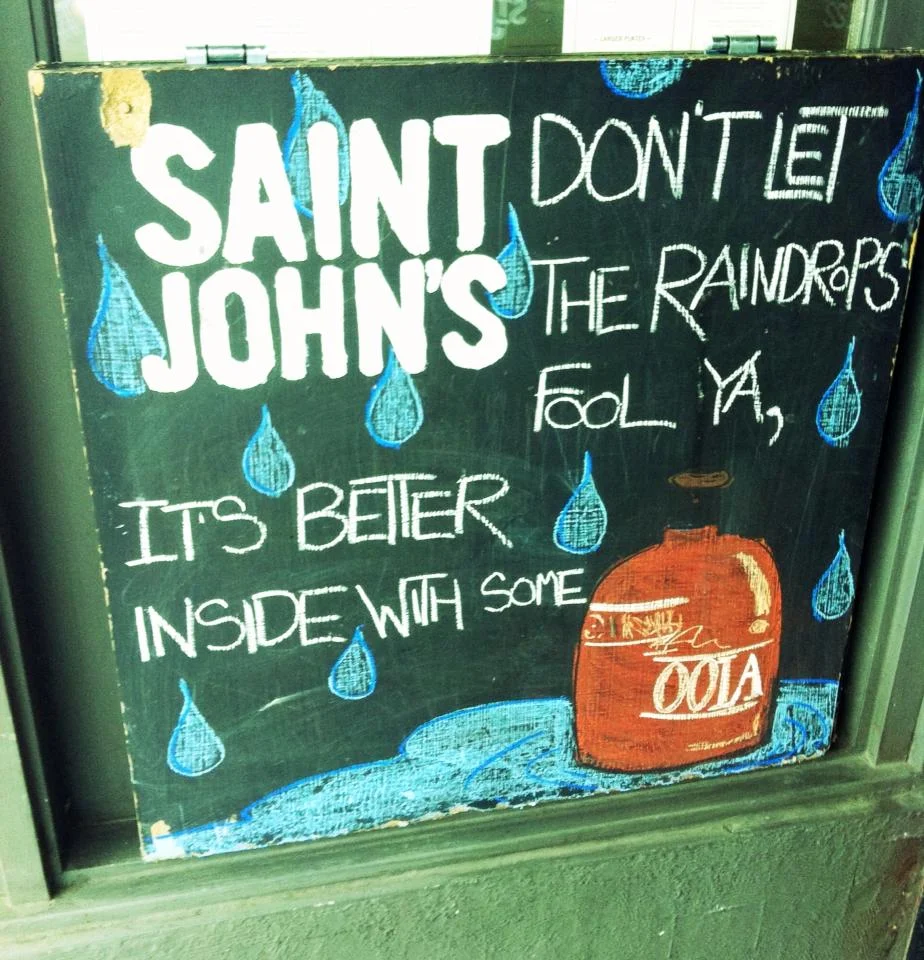 SAINT
JOHN'S
DON'T LET
THE RAINDROPS
FOOL YA,
IT'S BETTER
INSIDE WITH SOME
OOLA